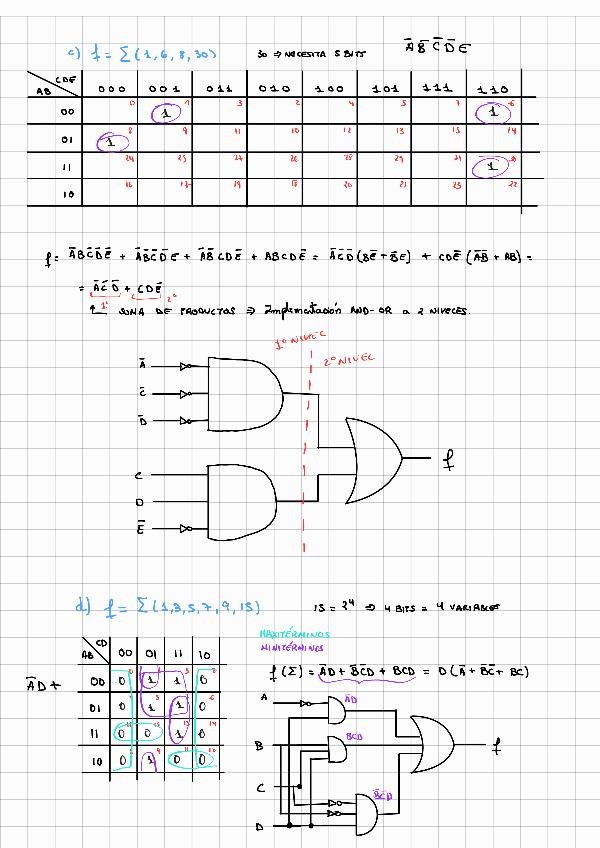 c) f = Σ (1, 6, 8, 30)   30 ⇒ NECESITA 5 BITS   A̅ B̅ C̅ D̅ E̅
CDE
AB   000   001   011   010   100   101   111   110
00   0   1 1   3   2   4   5   7   1 6
01   1 8   9   11   10   12   13   15   14
11   24   25   27   26   28   29   31   1 30
10   16   17   19   18   20   21   23   22
f = A̅BC̅D̅E̅ + A̅B̅C̅D̅E + A̅B̅CDE̅ + ABCDE̅ = A̅C̅D̅(BE̅ + B̅E) + CDE̅(A̅B̅ + AB) =
= A̅C̅D̅ + CDE̅
1º   2º
SUMA DE PRODUCTOS ⇒ Implementación AND-OR a 2 NIVELES.
1º NIVEL
2º NIVEL
A̅
C̅
D̅
f
C
D
E̅
d) f = Σ (1, 3, 5, 7, 9, 15)   15 = 2⁴ ⇒ 4 BITS = 4 VARIABLES
MAXITÉRMINOS
MINITÉRMINOS
CD
AB   00   01   11   10
00   0   1   1   0
01   0   1   1   0
11   0   0   1   0
10   0   1   0   0
A̅D +
f(Σ) = A̅D + B̅C̅D + BCD = D(A̅ + B̅C̅ + BC)
A   A̅D
B   BCD
f
C   B̅C̅D
D